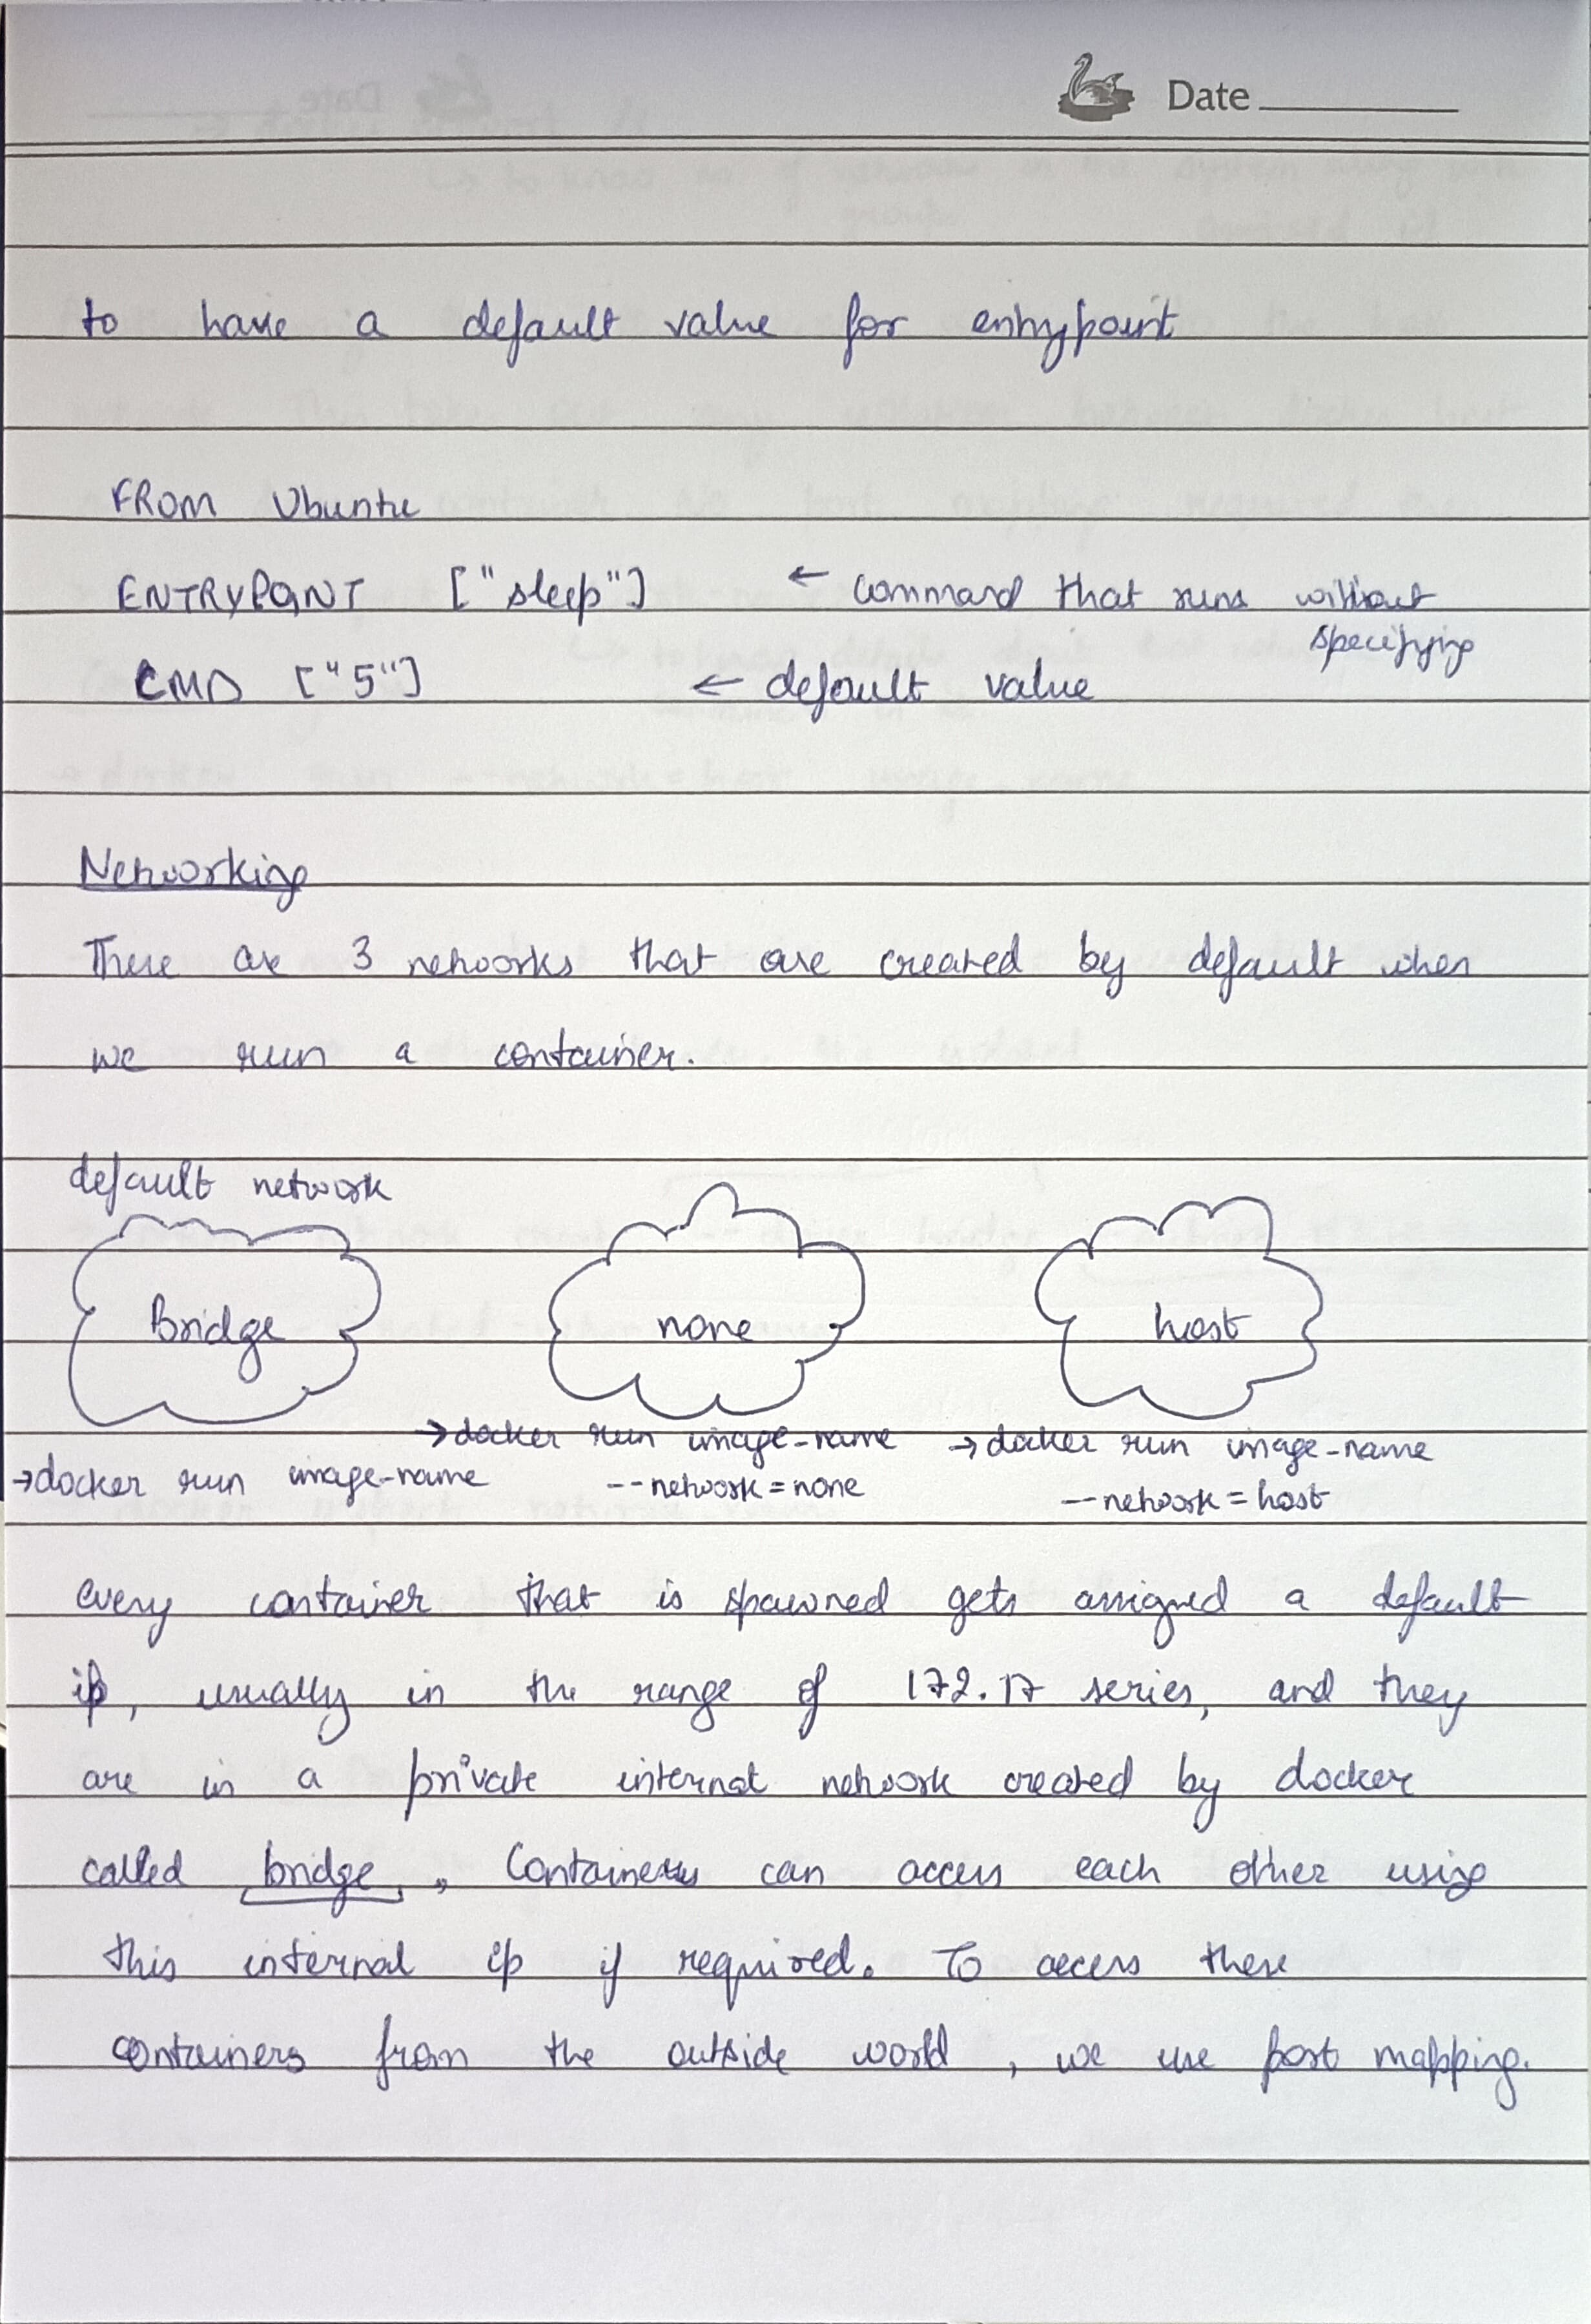 Date
to have a default value for entrypoint
FROM Ubuntu
ENTRYPOINT ["sleep"] ← command that runs without
specifying
CMD ["5"] ← default value
Networking
There are 3 networks that are created by default when
we run a container.
default network
Bridge none host
→docker run image-name →docker run image-name →docker run image-name
--network=none --network=host
every container that is spawned gets assigned a default
ip, usually in the range of 172.17 series, and they
are in a private internal network created by docker
called bridge, Containers can access each other using
this internal ip if required. To access these
containers from the outside world, we use port mapping.